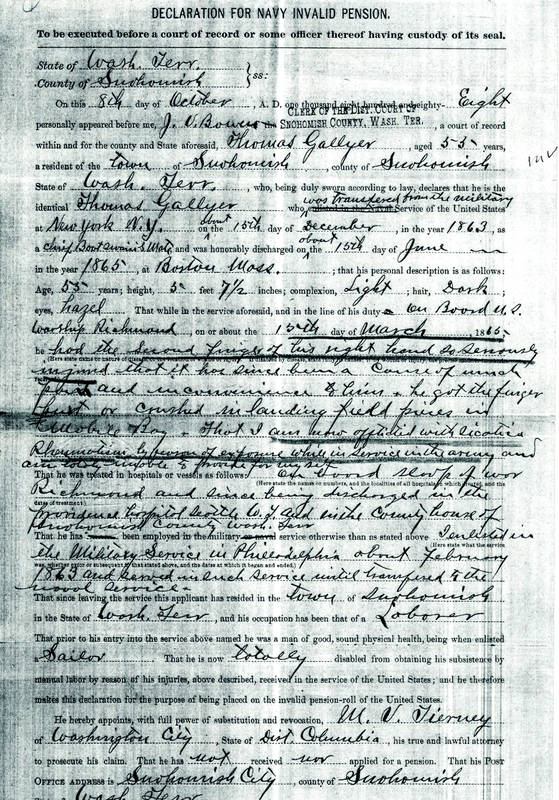 DECLARATION FOR NAVY INVALID PENSION.
To be executed before a court of record or some officer thereof having custody of its seal.
State of Wash. Terr.
County of Snohomish } ss:
On this 8th day of October, A. D. one thousand eight hundred and eighty-Eight
CLERK OF THE DIST. COURT OF
personally appeared before me, J. V. Bowen SNOHOMISH COUNTY, WASH. TER., a court of record
within and for the county and State aforesaid, Thomas Gallyer, aged 55 years,
a resident of the town of Snohomish, county of Snohomish
State of Wash. Terr., who, being duly sworn according to law, declares that he is the
was transfered from the military
identical Thomas Gallyer who Service of the United States
at New York N.Y. on the about 15th day of December, in the year 1863, as
a chief Boatswain's Mate and was honorably discharged on the about 15th day of June
in the year 1865, at Boston Mass.; that his personal description is as follows:
Age, 55 years; height, 5 feet 7½ inches; complexion, Light; hair, Dark;
eyes, hazel That while in the service aforesaid, and in the line of his duty on Board U.S.
Warship Richmond, on or about the 15th day of March, 1865
he had the Second finger of his right hand so seriously
injured that it has since been a cause of much
and inconvenience to him & he got the finger
hurt or crushed in landing field pieces in
Mobile Bay & That I am now aflicted with Sciatica
Rheumatism by reason of exposure while in service in the army and
am totally unable to provide for my self
That he was treated in hospitals or vessels as follows: On board sloop of war
Richmond and since being discharged in the
providence hospital Seattle W.T. and in the County house of
Snohomish County Wash. Terr
That he has been employed in the military or naval service otherwise than as stated above I enlisted in
(Here state what the service
the Military Service in Philadelphia about February
was, whether prior or subsequent to that stated above, and the dates at which it began and ended.)
1863 and served in such service until transfered to the
naval service.
That since leaving the service this applicant has resided in the town of Snohomish
in the State of Wash. Terr, and his occupation has been that of a Laborer
That prior to his entry into the service above named he was a man of good, sound physical health, being when enlisted
a Sailor. That he is now totally disabled from obtaining his subsistence by
manual labor by reason of his injuries, above described, received in the service of the United States; and he therefore
makes this declaration for the purpose of being placed on the invalid pension-roll of the United States.
He hereby appoints, with full power of substitution and revocation, M. V. Tierney
of Washington City, State of Dist. Columbia, his true and lawful attorney
to prosecute his claim. That he has not received nor applied for a pension. That his POST
OFFICE ADDRESS is Snohomish City, county of Snohomish
Wash Terr